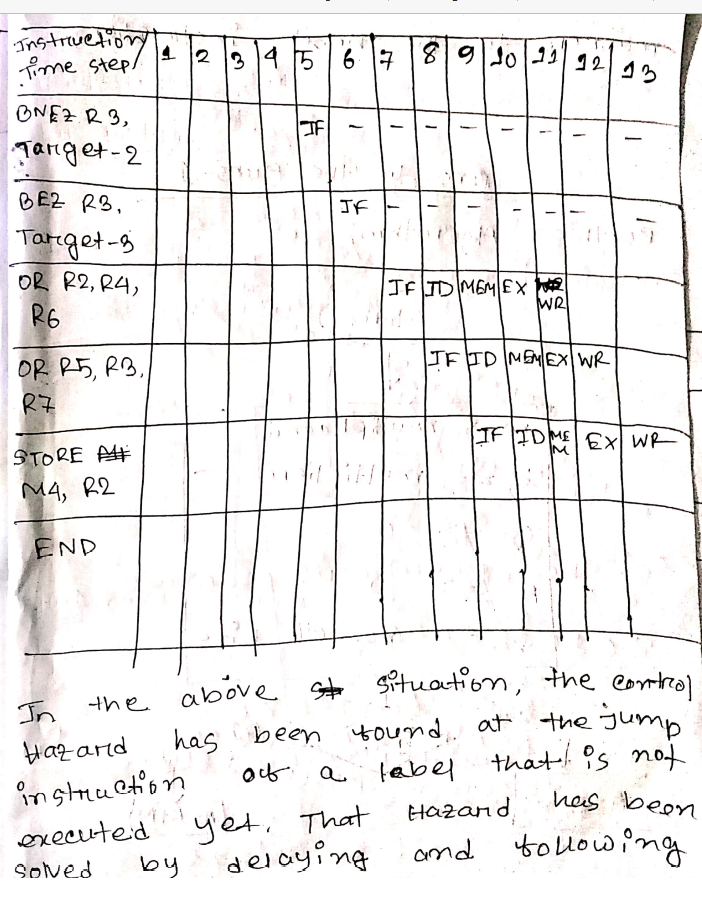 Instruction/ Time step/ 1 2 3 4 5 6 7 8 9 10 11 12 13
BNEZ R3, IF - - - - - - - -
Target-2
BEZ R3, IF - - - - - - -
Target-3
OR R2, R4, IF ID MEM EX WR
R6
OR R5, R3, IF ID MEM EX WR
R7
STORE IF ID MEM EX WR
M4, R2
END
In the above situation, the control
Hazard has been found at the jump
instruction of a label that is not
executed yet. That Hazard has been
solved by delaying and following